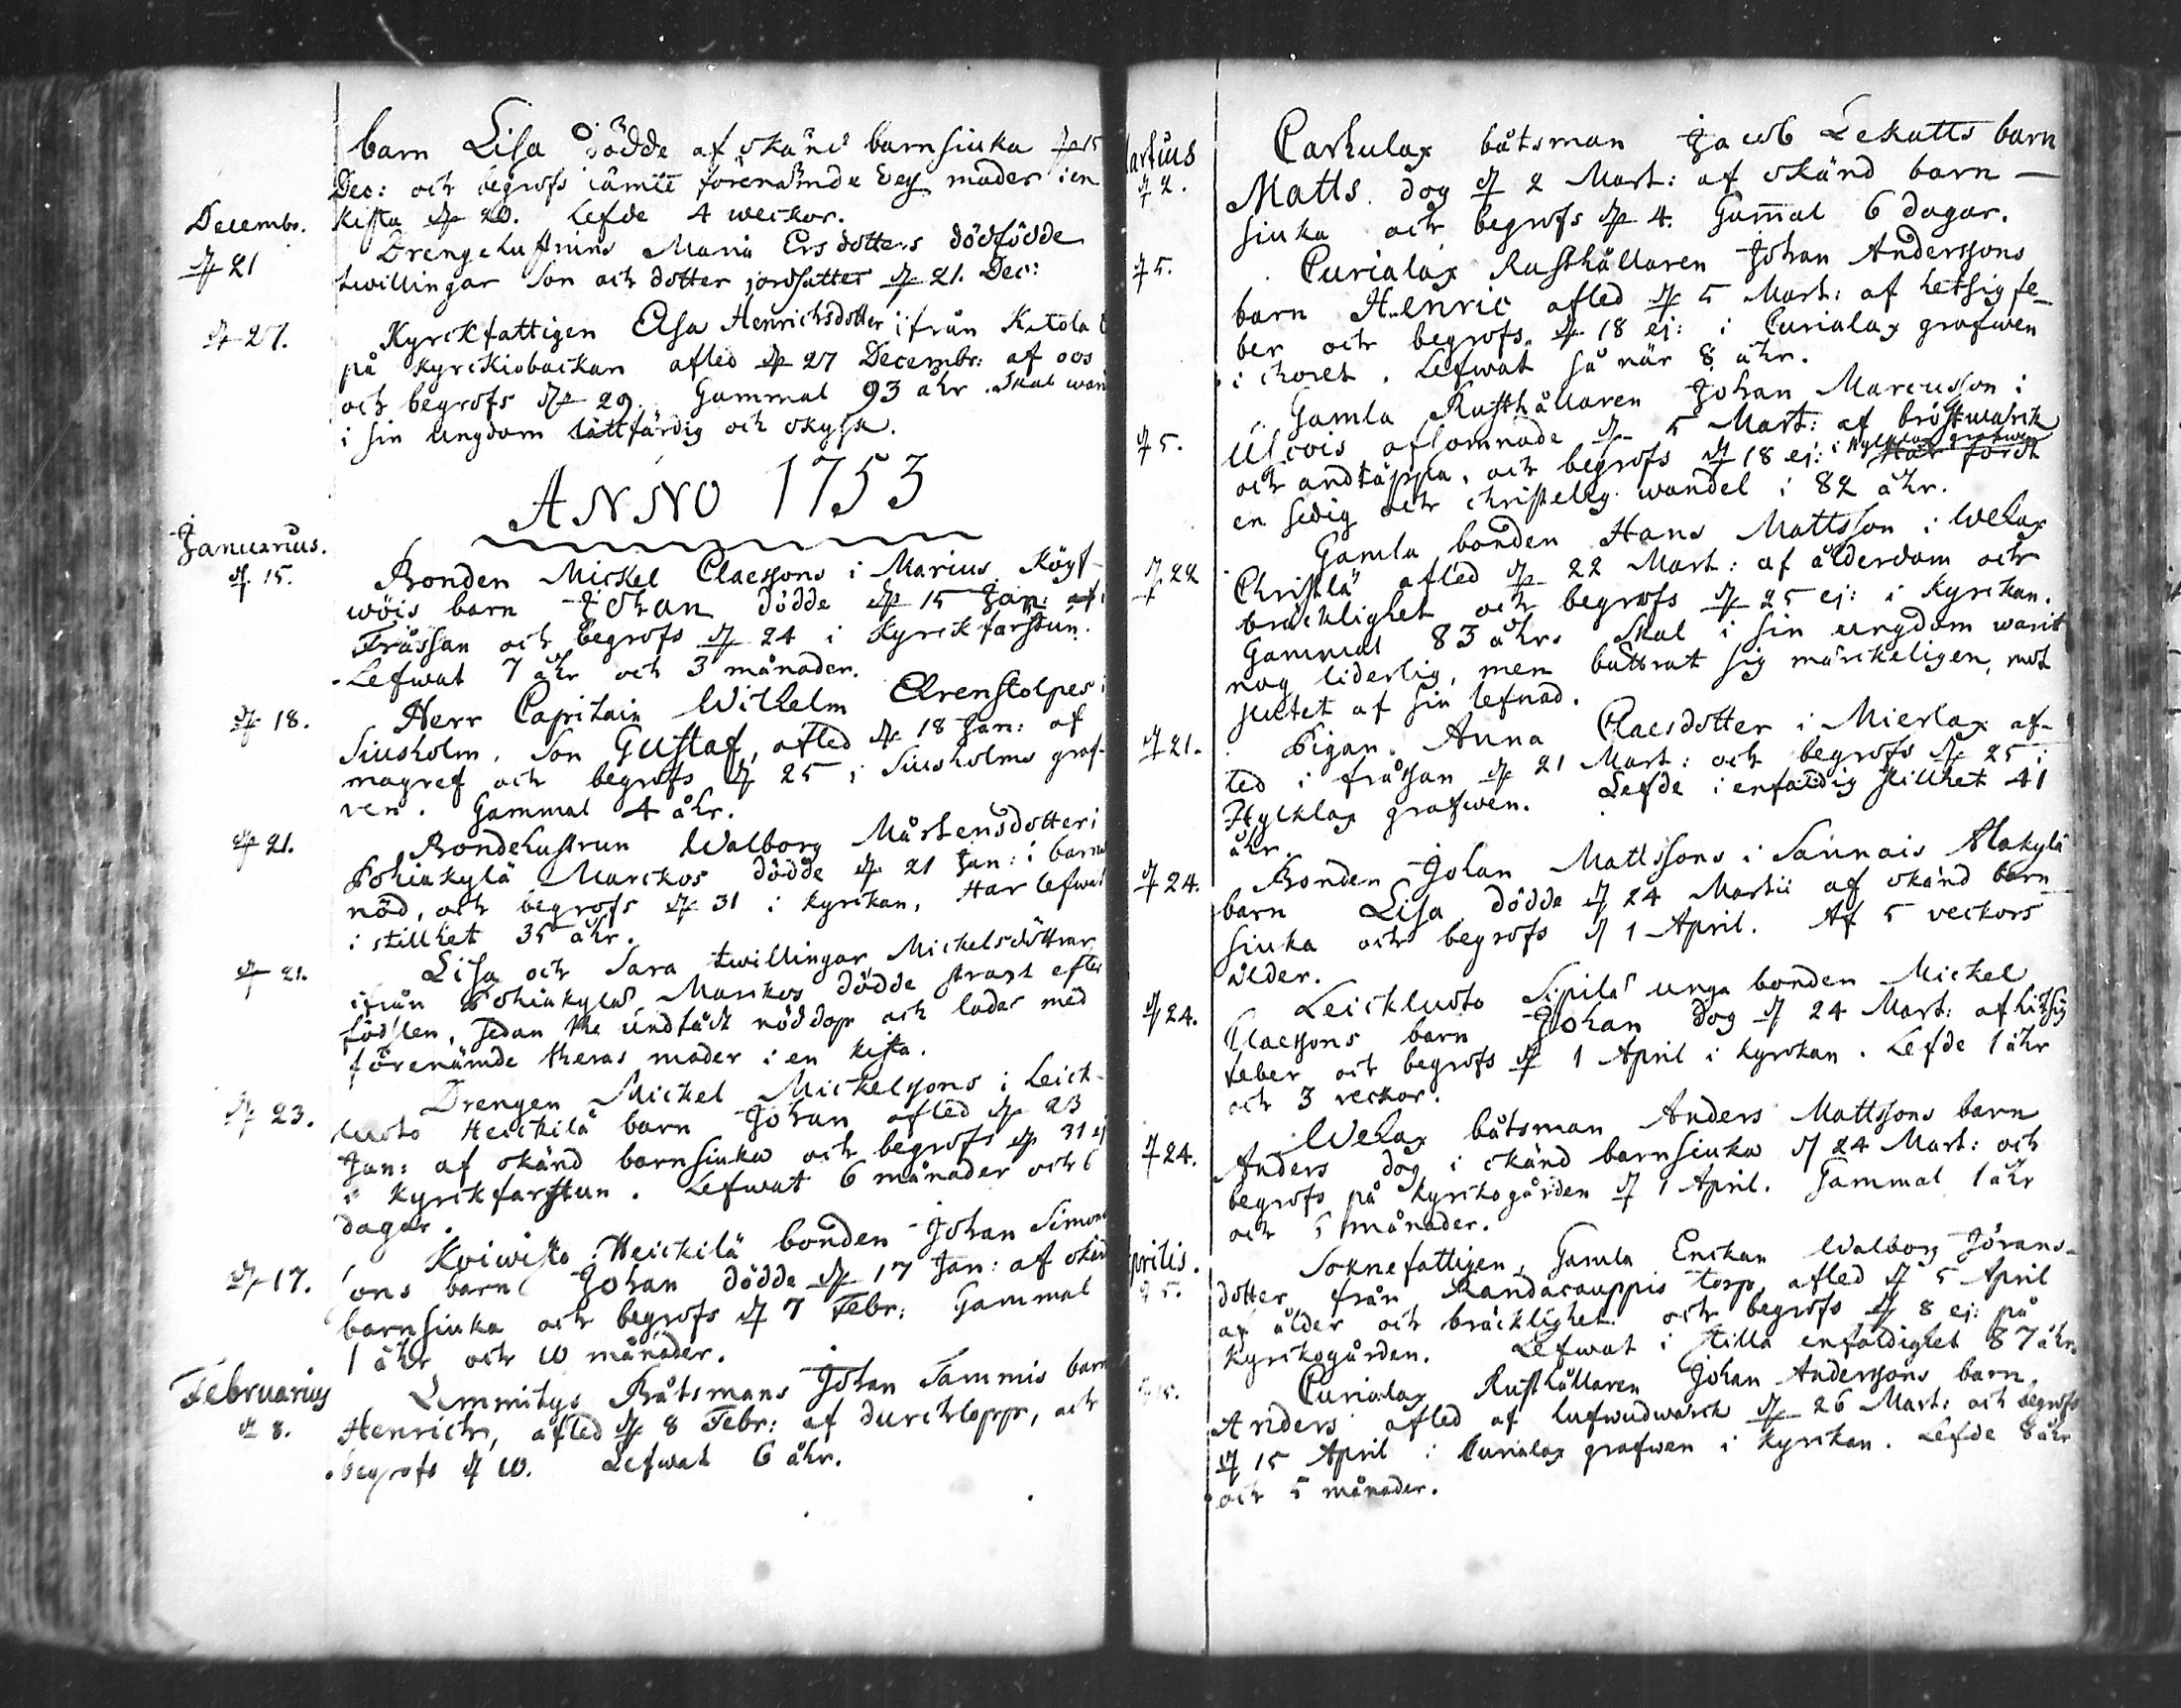 barn Lisa dödde af okänd barnsiuka d. 15
Dec: och begrofs jämte förenämde modren i en
kista d. 20. Lefde 4 weckor.
Decembr.
d. 21
Drengehustruns Maria Ersdotters dödfödde
twillingar son och dotter jordsattes d. 21. Dec:
d. 27.
Kyrckfattigen Elsa Henrichsdotter ifrån Ketola
på Kyrckiobackan afled d. 27 Decembr: af oos
och begrofs d. 29. Gammal 93 åhr. Skal warit
i sin ungdom lättfärdig och okysk.
ANNO 1753
Januarius.
d. 15.
Bonden Mickel Claessons i Marius Köyl-
wöis barn Johan dödde d. 15 Jan: af
Fråssan och begrofs d. 24 i Kyrckfarstun.
Lefwat 7 åhr och 3 månader.
d. 18.
Herr Capitain Wilhelm Ehrenstolpes i
Siusholm. Son Gustaf, afled d. 18 Jan: af
magref och begrofs d. 25 i Siusholms graf-
ven. Gammal 4 åhr.
d. 21.
Bondehustrun Walborg Mårtensdotter i
Pohiakylä Marckos dödde d. 21 Jan: i barns
nöd, och begrofs d. 31 i kyrckan, Har lefwat
i stillhet 35 åhr.
d. 21.
Lisa och Sara twillingar Mickelsdöttrar
ifrån Pohiakylä Marckos dödde strast efter
födslen, sedan the undfådt nöddop och lades med
förenämde theras moder i en kista.
d. 23.
Drengen Mickel Mickelssons i Leick-
lusto Heickilä barn Johan afled d. 23
Jan: af okänd barnsiuka och begrofs d. 31 ej:
i kyrckfarstun. Lefwat 6 månader och 6
dagar.
d. 17.
Koiwisto Heickilä bonden Johan Simons-
sons barn Johan dödde d. 17 Jan: af okänd
barnsiuka och begrofs d. 7 Febr: Gammal
1 åhr och 10 månader.
Februarius
d. 8.
Lemmitys Båtsmans Johan Sammis barn
Henrich, afled d. 8 Febr: af durchlopp, och
begrofs d. 10. Lefwat 6 åhr.
Martius
d. 2.
Carhulax båtsman Jacob Lekatts barn
Matts. dog d. 2 Mart: af okänd barn-
siuka och begrofs d. 4. Gammal 6 dagar.
d. 5.
Curialax Rusthållaren Johan Anderssons
barn Henric afled d. 5 Mart: af hetsig fe-
ber och begrofs d. 18 ej: i Curialax grafwen
i choret. Lefwat så när 8 åhr.
d. 5.
Gamla Rusthållaren Johan Marcusson i
Ulwois afsomnade d. 5 Mart: af bröstwärk
och andtäppa, och begrofs d. 18 ej: i Hylcklax grafwen Har fördt
en sedig och christelig wandel i 82 åhr.
d. 22
Gamla bonden Hans Mattsson i Welax
Christlä afled d. 22 Mart: af ålderdom och
bräcklighet och begrofs d. 25 ej: i Kyrckan.
Gammal 83 åhr. Skal i sin ungdom warit
nog liderlig, men bättrat sig märckeligen, mot
slutet af sin lefnad.
d. 21.
Pigan Anna Claesdotter i Mierlax af-
led i fråssan d. 21 Mart: och begrofs d. 25 i
Hylcklax grafwen. Lefde i enfaldig stillhet 41
åhr.
d. 24.
Bonden Johan Mattssons i Sannais Alakylä
barn Lisa dödde d. 24 Martii af okänd barn
siuka och begrofs d. 1 April. Af 5 veckors
ålder.
d. 24.
Leicklusto Sipilä unga bonden Mickel
Claessons barn Johan dog d. 24 Mart: af hitsig
feber och begrofs d. 1 April i kyrckan. Lefde 1 åhr
och 3 veckor.
d. 24.
Welax båtsman Anders Mattssons barn
Anders dog i okänd barnsiuka d. 24 Mart: och
begrofs på kyrckogården d. 1 April. Gammal 1 åhr
och 5 månader.
Aprilis.
d. 5.
Soknefattigen, Gamla Enckan Walborg Jörans-
dotter från Randacauppis torp afled d. 5 April
af ålder och bräcklighet och begrofs d. 8 ej: på
kyrckogården. Lefwat i stilla enfaldighet 87 åhr.
d. 15.
Curialax Rusthållaren Johan Anderssons barn,
Anders afled af hufwudwärck d. 26 Mart: och begrofs
d. 15 April i Curialax grafwen i kyrckan. Lefde 8 åhr
och 5 månader.